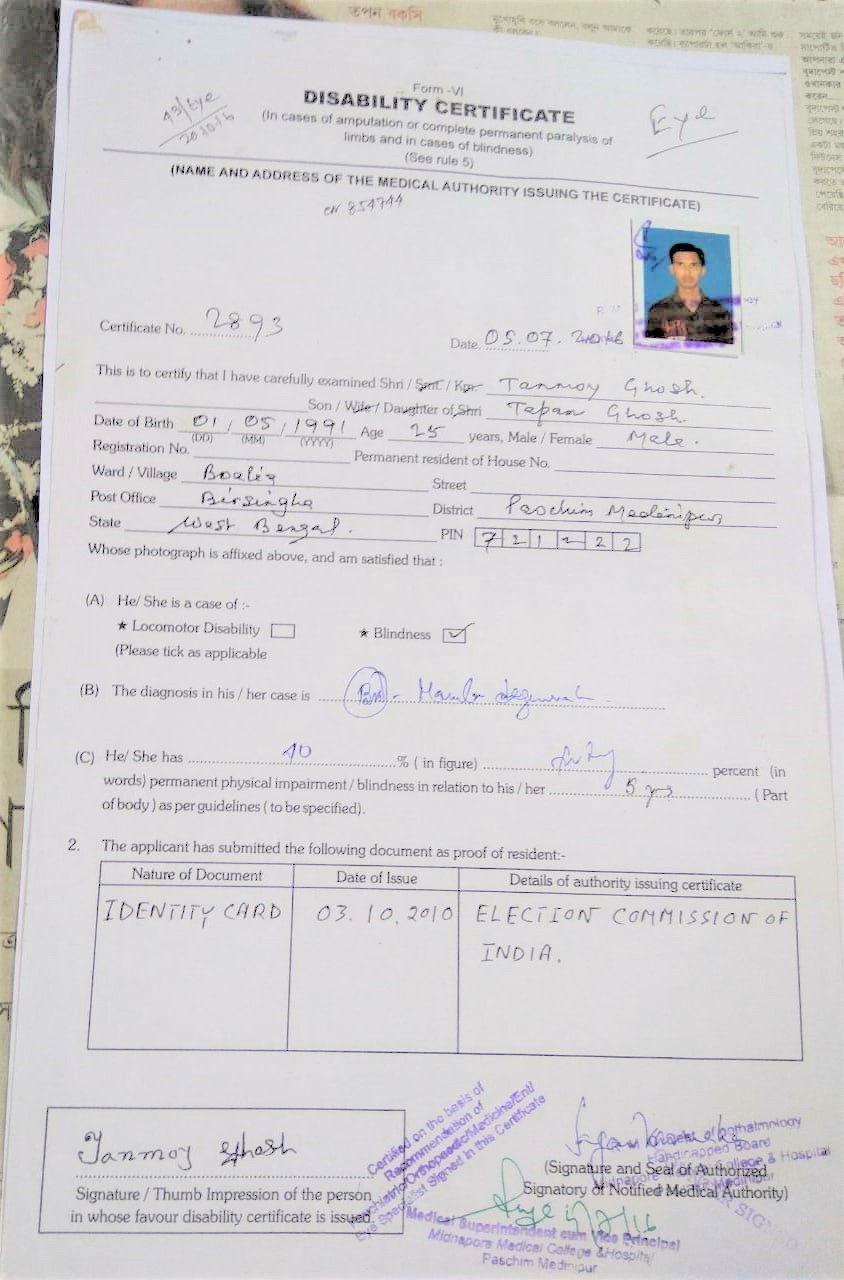 তপন বকসি
Form -VI
DISABILITY CERTIFICATE
(In cases of amputation or complete permanent paralysis of
limbs and in cases of blindness)
(See rule 5)
43/Eye
20.10.16
Eye
(NAME AND ADDRESS OF THE MEDICAL AUTHORITY ISSUING THE CERTIFICATE)
854744
Certificate No. 2893
Date. 05.07.2016
This is to certify that I have carefully examined Shri / Smt. / Km. Tanmoy Ghosh.
Son / Wife / Daughter of Shri Tapan Ghosh.
Date of Birth 01 / 05 / 1991 Age 25 years, Male / Female Male.
(DD) (MM) (YYYY)
Registration No. Permanent resident of House No.
Ward / Village Boalia Street
Post Office Birsingha District Paschim Medinipur
State West Bengal. PIN 721222
Whose photograph is affixed above, and am satisfied that :
(A) He/ She is a case of :-
★ Locomotor Disability ★ Blindness
(Please tick as applicable
(B) The diagnosis in his / her case is
(C) He/ She has 40 % ( in figure) percent (in
words) permanent physical impairment / blindness in relation to his / her 5 yrs ( Part
of body ) as per guidelines ( to be specified).
2. The applicant has submitted the following document as proof of resident:-
Nature of Document Date of Issue Details of authority issuing certificate
IDENTITY CARD 03.10.2010 ELECTION COMMISSION OF
INDIA.
Tanmoy Ghosh
Signature / Thumb Impression of the person
in whose favour disability certificate is issued.
Certified on the basis of
Recommendation of
Psychiatric/Orthopaedic/Medicine/Ent/
Eye Specialist Signed in this Certificate
(Signature and Seal of Authorized
Signatory of Notified Medical Authority)
Handicapped Board
Medical Superintendent cum Vice Principal
Midnapore Medical College & Hospital
Paschim Medinipur